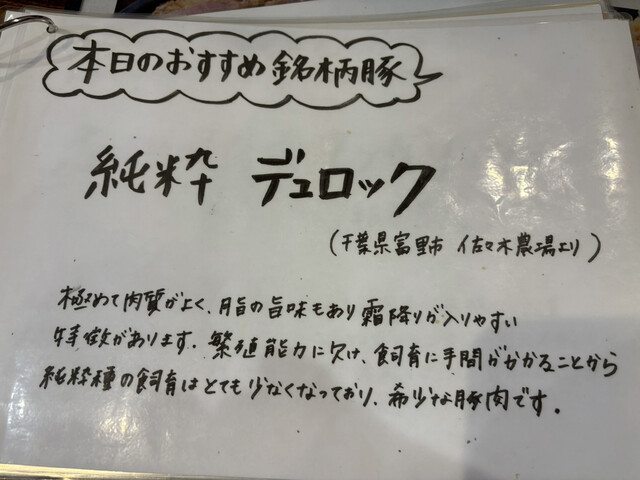 本日のおすすめ銘柄豚
純粋 デュロック
(千葉県富里市 佐々木農場より)
極めて肉質がよく、脂の旨味もあり霜降りが入りやすい
特徴があります。繁殖能力に欠け、飼育に手間がかかることから
純粋種の飼育はとても少なくなっており、希少な豚肉です。